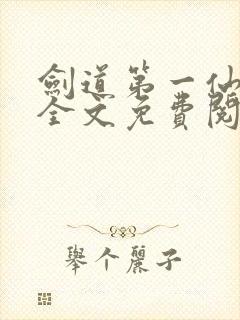 劍道第一仙
全文免費閱
舉个麗子